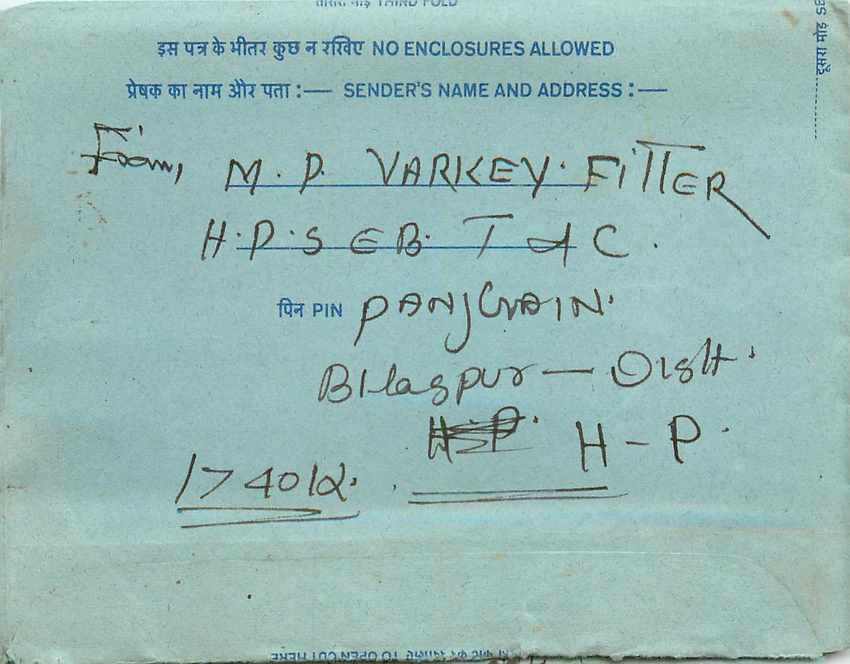 तीसरा मोड़ THIRD FOLD
इस पत्र के भीतर कुछ न रखिए NO ENCLOSURES ALLOWED
प्रेषक का नाम और पता :— SENDER'S NAME AND ADDRESS :—
दूसरा मोड़ SE
From, M. P. VARKEY. FITTER
H.P.S EB. T & C.
पिन PIN PANJGRAIN.
Bilaspur — Distt.
H-P.
174012.
TO OPEN CUT HERE